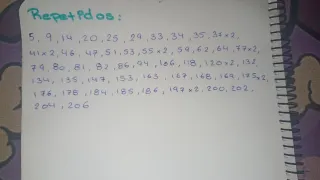 Repetidos:
5, 9, 14, 20, 25, 29, 33, 34, 35, 36x2,
41x2, 46, 47, 51, 53, 55x2, 59, 62, 64, 77x2,
79, 80, 81, 82, 86, 94, 106, 118, 120x2, 132,
134, 135, 147, 153, 163, 167, 168, 169, 175x2,
176, 178, 184, 185, 186, 197x2, 200, 202,
204, 206